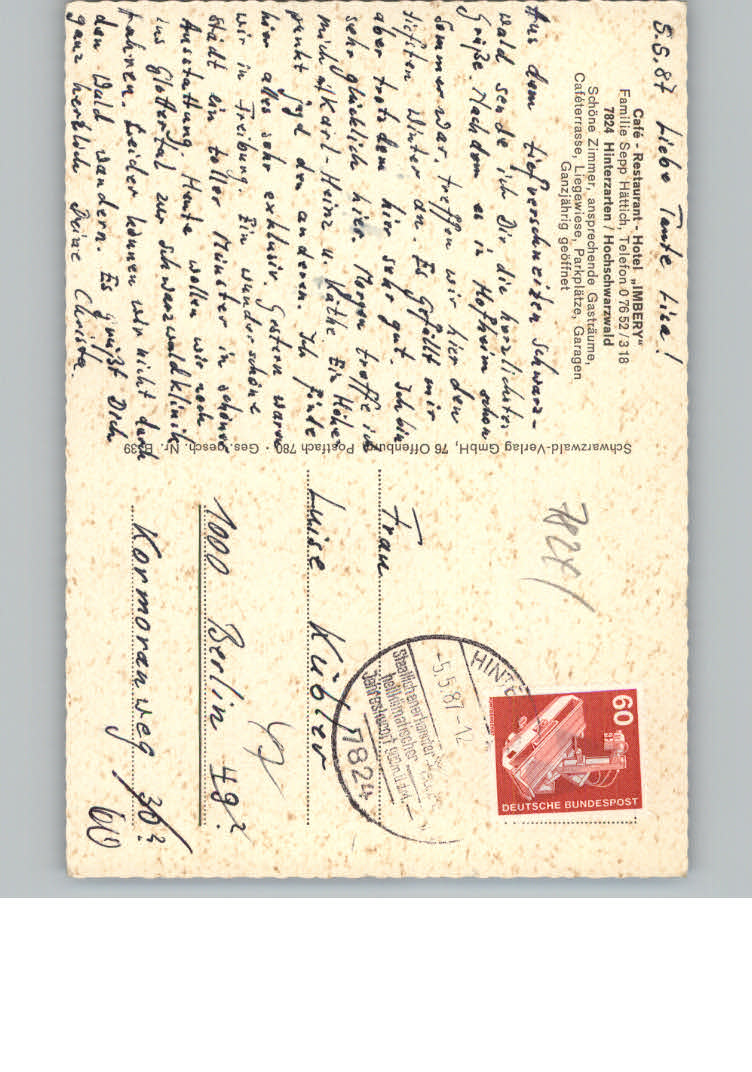 5.5.87 Liebe Tante Lisa!
Café - Restaurant - Hotel „IMBERY"
Familie Sepp Hättich, Telefon 0 76 52 / 3 18
7824 Hinterzarten / Hochschwarzwald
Schöne Zimmer, ansprechende Gasträume,
Caféterrasse, Liegewiese, Parkplätze, Garagen
Ganzjährig geöffnet
Aus dem tiefverschneiten Schwarz-
wald sende ich Dir die herzlichsten
Grüße. Nachdem es in Hofheim schon
Sommer war, treffen wir hier den
tiefsten Winter an. Es gefällt mir
aber trotzdem hier sehr gut. Ich bin
sehr glücklich hier. Morgen treffe ich
mich m. Karl-Heinz u. Käthe. Ein Höhe-
punkt jagd den anderen. Ich finde
hier alles sehr exklusiv. Gestern waren
wir in Freiburg. Ein wunderschöne
Stadt ein toller Münster in schöner
Ausstattung. Heute wollen wir noch
ins Glottertal zur Schwarzwaldklinik
fahren. Leider können wir nicht durch
den Wald wandern. Es grüßt Dich
ganz herzlich Deine Christa
Schwarzwald-Verlag GmbH, 76 Offenburg, Postfach 780 · Ges. gesch. Nr. B 39
7824
60
DEUTSCHE BUNDESPOST
HINTE
-5.5.87-12
Staatlich anerkannter
heilklimatischer
Jahreskurort
7824
Frau
Luise Kübler
1000 Berlin 49
Kormoranweg 30
60